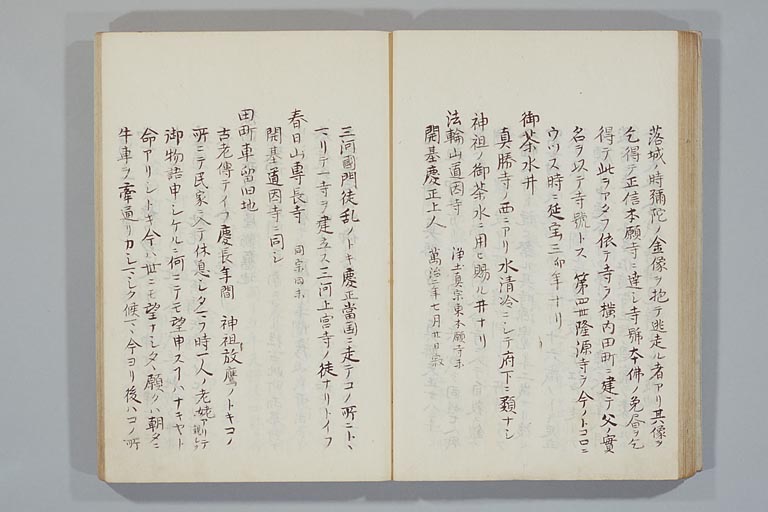 落城ノ時彌陀ノ金像ヲ抱テ逃走ル者アリ其像ヲ
乞得テ正信本願寺ニ達シ寺號本佛ノ免ヲ乞
得テ此ラアタフ依テ寺ヲ横内田町ニ建テ父ノ實
名ヲ以テ寺號トス 第四世隆源寺ヲ今ノトコロニ
ウツス時ニ延宝三卯年ナリ
御茶水井
真勝寺ノ西ニアリ水清冷ニシテ府下ニ類ナシ
神祖ノ御茶水ニ用ヒ賜ル井ナリ
法輪山道因寺 浄土真宗東本願寺末
開基慶正上人 萬治二年七月廿日寂
三河國門徒乱ノトキ慶正當国ニ走テコノ所ニトヽ
マリテ一寺ヲ建立ス三河上宮寺ノ徒ナリトイフ
春日山專長寺 同宗同末
開基道因寺ニ同シ
田町車留旧地
古老傳テイフ慶長年間 神祖放鷹ノトキコノ
所ニテ民家ニ入テ休息シタマフ時一人ノ老姥アリテ
御物語申シケルニ何ニテモ望申スヘハナキヤト
命アリシトキ今ハ世ニモ望ナシタヽ願クハ朝夕ニ
牛車ヲ牽通リカシマシク候マヽ今ヨリ後ハコノ所